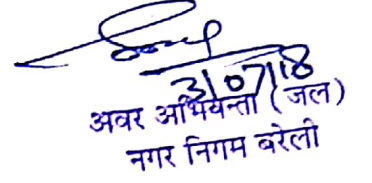 31/07/18
अवर अभियन्ता (जल)
नगर निगम बरेली